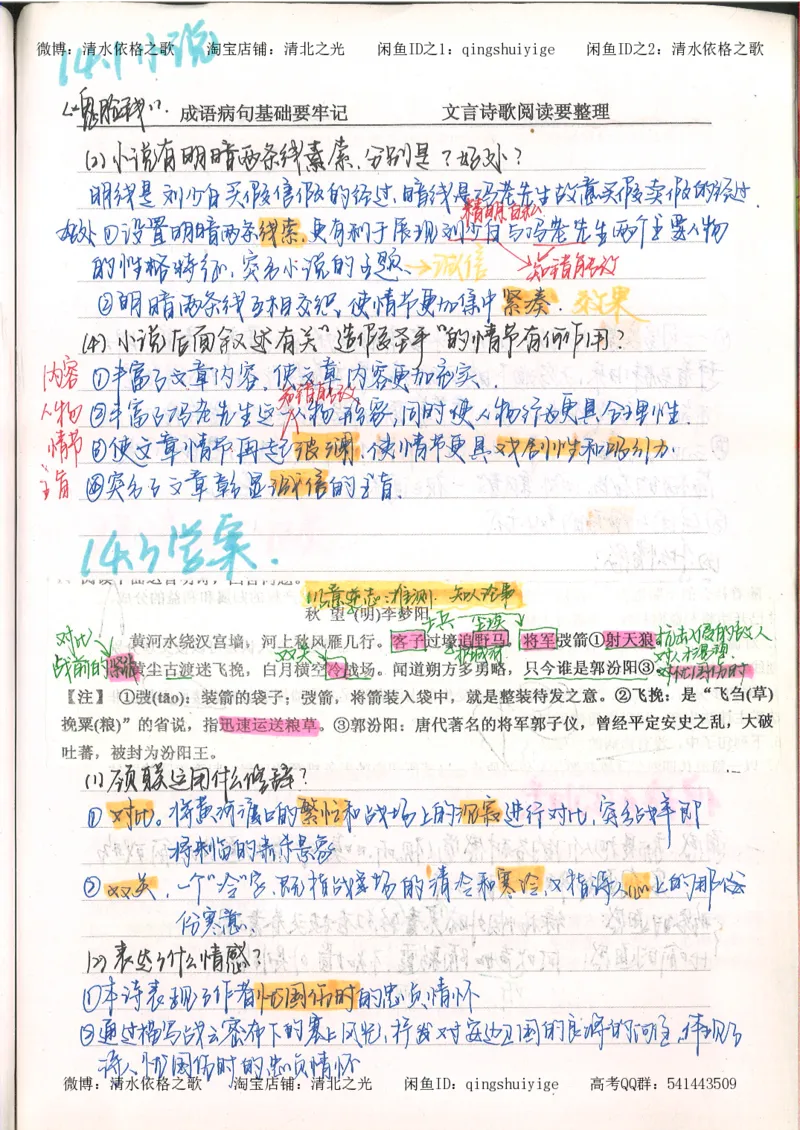 微博：清水依格之歌 淘宝店铺：清北之光 闲鱼ID之1：qingshuiyige 闲鱼ID之2：清水依格之歌
14.1小说
成语病句基础要牢记 文言诗歌阅读要整理
(2)小说有明暗两条线索，分别是？好处？
明线是刘少白买假信假的经过，暗线是冯老先生故意买假卖假的经过.
精明自私
好处①设置明暗两条线索，更有利于展现刘少白与冯老先生两个主要人物
的性格特征，突出小说的主题→诚信 知错能改
②明暗两条线互相交织，使情节更加集中紧凑. 效果
(4)小说后面叙述有关“造假圣手”的情节有何作用？
内容 ①丰富了文章内容，使文章内容更加充实.
知错能改
人物 ②丰富了冯老先生这一人物形象，同时使人物行为更具合理性.
情节 ③使文章情节再起波澜，使情节更具戏剧性和吸引力.
主旨 ④突出了文章彰显诚信的主旨.
14.3学案.
阅读下面这首明诗，回答问题。
秋 望 (明)李梦阳
对比 黄河水绕汉宫墙，河上秋风雁几行。客子过壕追野马，将军弢箭①射天狼
战前的 黄尘古渡迷飞挽，白月横空冷战场。闻道朔方多勇略，只今谁是郭汾阳③
双关
【注】 ①弢(tāo)：装箭的袋子；弢箭，将箭装入袋中，就是整装待发之意。②飞挽：是“飞刍(草)
挽粟(粮)”的省说，指迅速运送粮草。③郭汾阳：唐代著名的将军郭子仪，曾经平定安史之乱，大破
吐蕃，被封为汾阳王。
(1)颈联运用什么修辞？
①对比。将黄河渡口的繁忙和战场上的沉寂进行对比，突出战争即
将来临的肃杀景象
②双关，一个“冷”字，既指战场的清冷和寒冷，又指诗人心上的那份
份寒意.
(2)表达了什么情感？
①本诗表现了作者忧国伤时的忠贞情怀
②通过描写战云密布下的塞上风光，抒发对安边卫国的良将的向往，体现了
诗人忧国伤时的忠贞情怀
微博：清水依格之歌 淘宝店铺：清北之光 闲鱼ID：qingshuiyige 高考QQ群：541443509